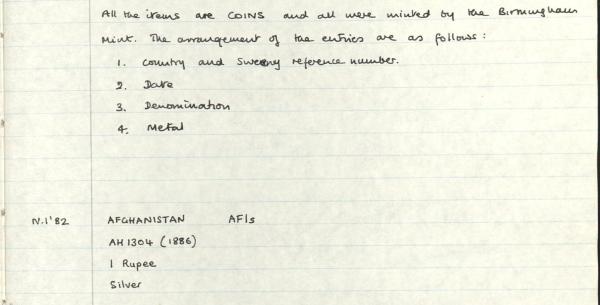 All the items are COINS and all were minted by the Birmingham
Mint. The arrangement of the entries are as follows:
1. Country and Sweeny reference number.
2. Date
3. Denomination
4. Metal
N.1'82 AFGHANISTAN AF/s
AH 1304 (1886)
1 Rupee
Silver